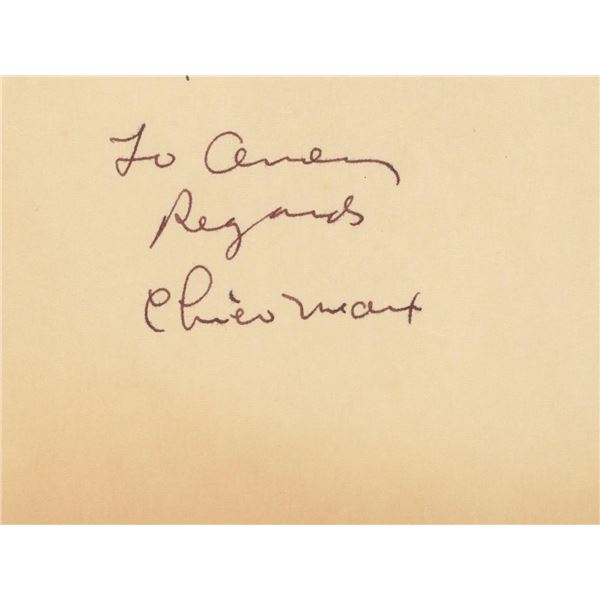 To
Regards
Chico Marx